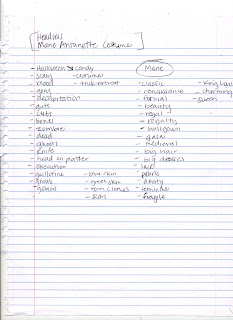 [Headless
Marie Antoinette Costume]
- Halloween - candy
- scary - costume
- blood - trick or treat
- gory
- decapitation
- guts
- cuts
- bones
- zombie
- dead
- ghost
- knife
- head on platter
- execution
- guillotine - blue skin
- - green skin
- - torn clothes
- scars
Marie
- classic - King Louis
- renaissance - charming
- formal - queen
- beauty
- regal
- royalty
- ballgown
- gala
- medieval
- big hair
- big dresses
- lace
- pearls
- dainty
- feminine
- fragile